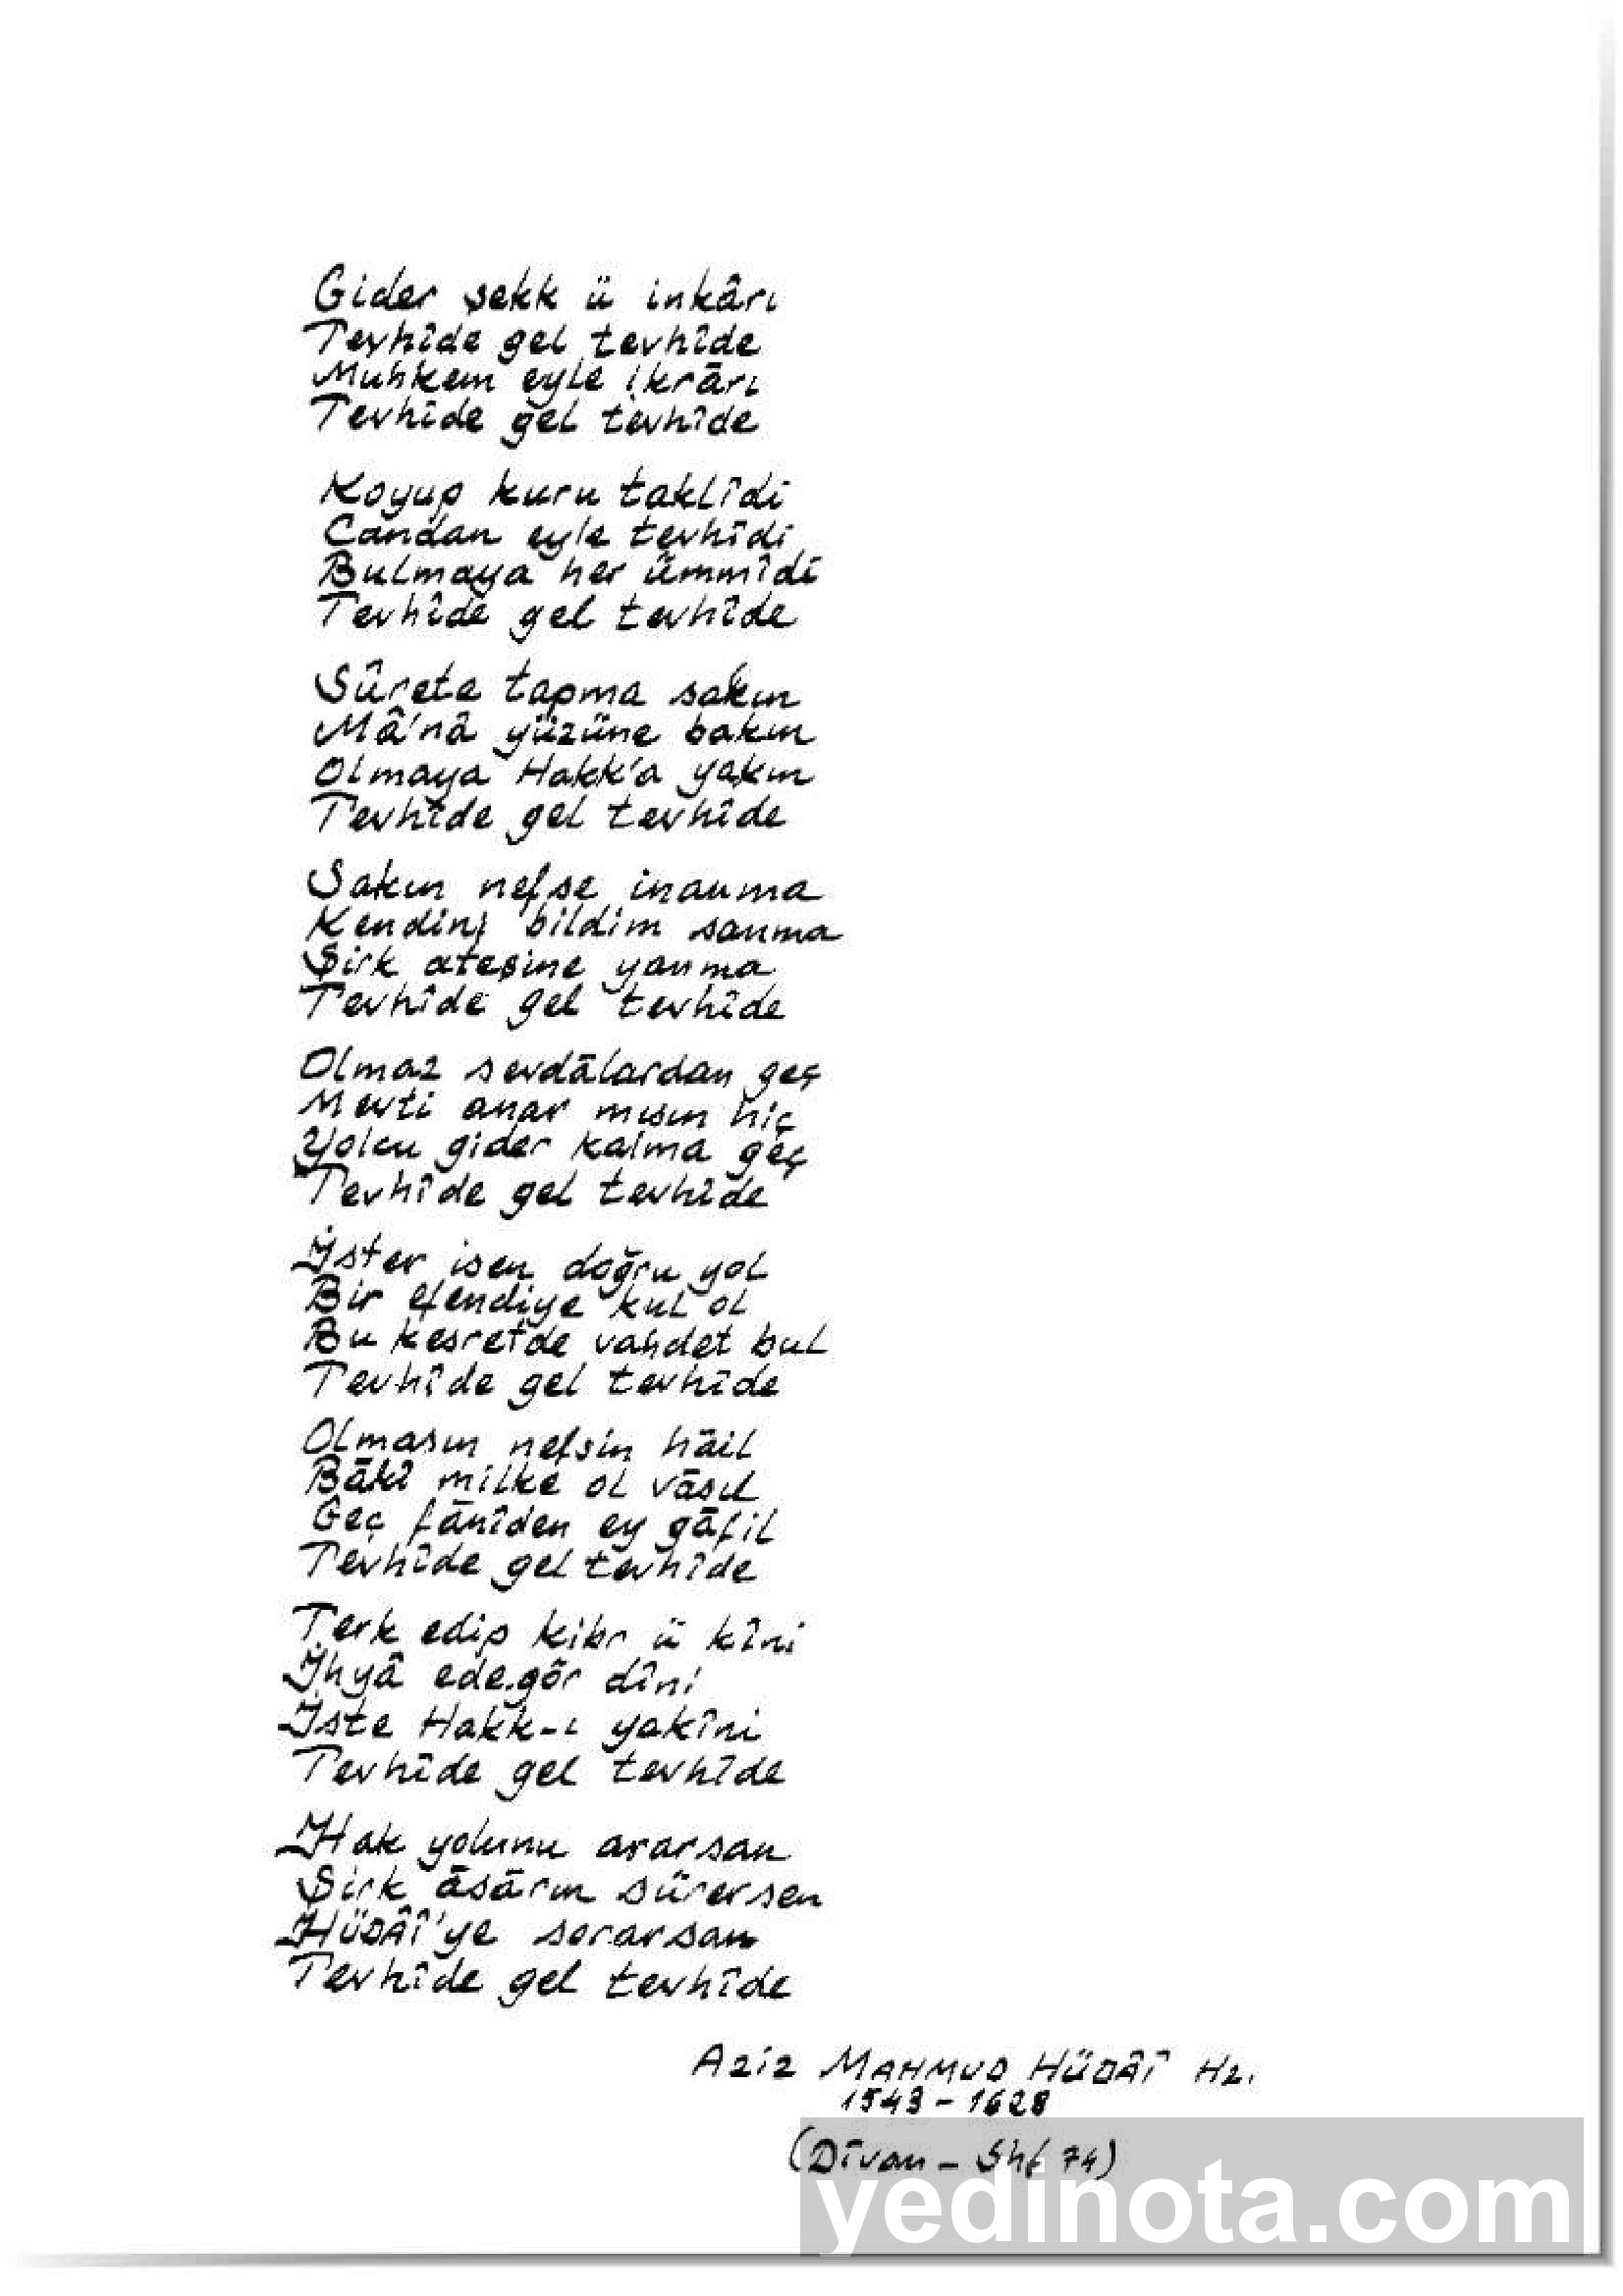 Gider şekk ü inkârı
Tevhîde gel tevhîde
Muhkem eyle ikrârı
Tevhîde gel tevhîde
Koyup kuru taklîdi
Candan eyle tevhîdi
Bulmaya her ümmîdi
Tevhîde gel tevhîde
Sûrete tapma sakın
Mâ'nâ yüzüne bakın
Olmaya Hakk'a yakın
Tevhîde gel tevhîde
Sakın nefse inanma
Kendini bildim sanma
Şirk ateşine yanma
Tevhîde gel tevhîde
Olmaz sevdâlardan geç
Mevti anar mısın hiç
Yolcu gider kalma geç
Tevhîde gel tevhîde
İster isen doğru yol
Bir efendiye kul ol
Bu kesret'de vahdet bul
Tevhîde gel tevhîde
Olmasın nefsin hâil
Bâkî milke ol vâsıl
Geç fânîden ey gâfil
Tevhîde gel tevhîde
Terk edip kibr ü kîni
İhyâ ede.gör dîni
İste Hakk-ı yakîni
Tevhîde gel tevhîde
Hak yolunu ararsan
Şirk âsârın sürersen
HÜDÂÎ'ye sorarsan
Tevhîde gel tevhîde
AZİZ MAHMUD HÜDÂÎ Hz.
1543-1628
(Dîvan - Shf 74)
yedinota.com